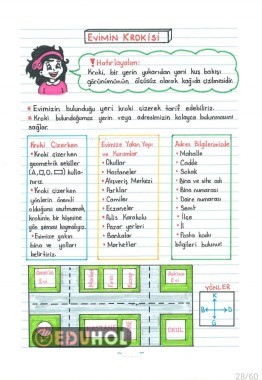 EVİMİN KROKİSİ
Hatırlayalım:
Kroki, bir yerin yukarıdan yani kuş bakışı
görünümünün, ölçüsüz olarak kağıda çizilmesidir.
* Evimizin bulunduğu yeri kroki çizerek tarif edebiliriz.
* Kroki bulunduğumuz yerin veya adresimizin kolayca bulunmasını
sağlar.
Kroki Çizerken
• Kroki çizerken
geometrik şekiller
kullanırız.
• Kroki çizerken
yönlerin önemli
olduğunu unutmamak,
krokinin bir köşesine
yön şeması koymalıyız.
• Evimize yakın
bina ve yolları
belirtiriz.
Evimize Yakın Yapı
ve Kurumlar
• Okullar
• Hastaneler
• Alışveriş Merkezi
• Parklar
• Camiler
• Eczaneler
• Polis Karakolu
• Pazar yerleri
• Bankalar
• Marketler
Adres Bilgilerimizde
• Mahalle
• Cadde
• Sokak
• Bina ve site adı
• Bina numarası
• Daire numarası
• Semt
• İlçe
• İl
• Posta kodu
bilgileri bulunur.
YÖNLER
K
B D
G
EDUHOL
OKUL
28/60